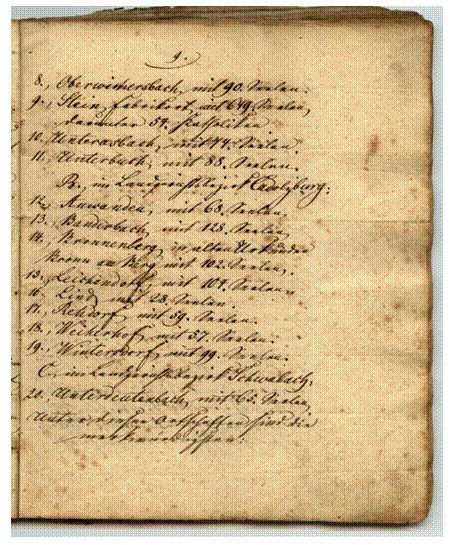 9.
8., Oberweihersbach, mit 90. Seelen.
9., Stein, Fabrikort, mit 649 Seelen,
darunter 54. Katholiken
10., Unterasbach, mit 44. Seelen.
11., Unterbach, mit 88. Seelen.
B., im Landgerichtsbezirk Cadolzburg:
12., Anwanden, mit 68. Seelen,
13., Banderbach, mit 128. Seelen,
14., Bronnenberg, in alten Urkunden
Bronn am Berg mit 102. Seelen.
15., Leichendorf, mit 109. Seelen,
16., Lind, mit 28. Seelen.
17., Rehdorf, mit 59. Seelen.
18., Weiherhof, mit 57. Seelen.
19., Wintersdorf, mit 99. Seelen.
C., im Landgerichtsbezirk Schwabach:
20., Unterdeutenbach, mit 62. Seelen,
Unter diesen Ortschaften sind die
merkwürdigsten: